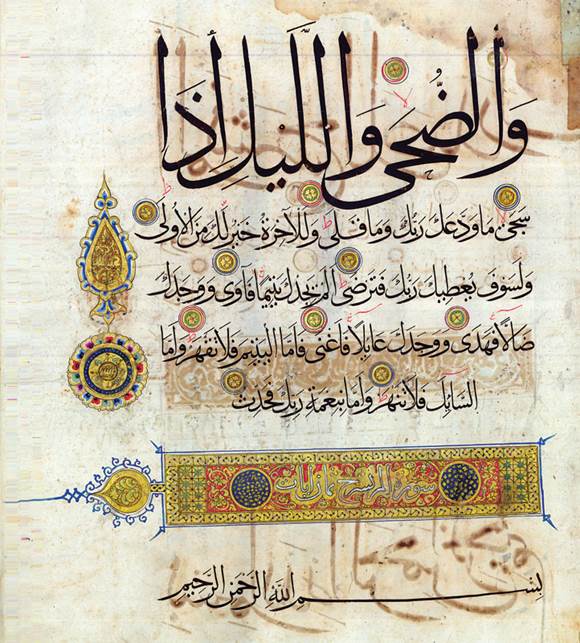 وَالضُّحَى وَاللَّيْلِ إِذَا
سَجَى مَا وَدَّعَكَ رَبُّكَ وَمَا قَلَى وَلَلْآخِرَةُ خَيْرٌ لَّكَ مِنَ الْأُولَى
وَلَسَوْفَ يُعْطِيكَ رَبُّكَ فَتَرْضَى أَلَمْ يَجِدْكَ يَتِيمًا فَآوَى وَوَجَدَكَ
ضَالًّا فَهَدَى وَوَجَدَكَ عَائِلًا فَأَغْنَى فَأَمَّا الْيَتِيمَ فَلَا تَقْهَرْ وَأَمَّا
السَّائِلَ فَلَا تَنْهَرْ وَأَمَّا بِنِعْمَةِ رَبِّكَ فَحَدِّثْ
سورة الم نشرح ثمان ايات
بِسْمِ اللَّهِ الرَّحْمَنِ الرَّحِيمِ